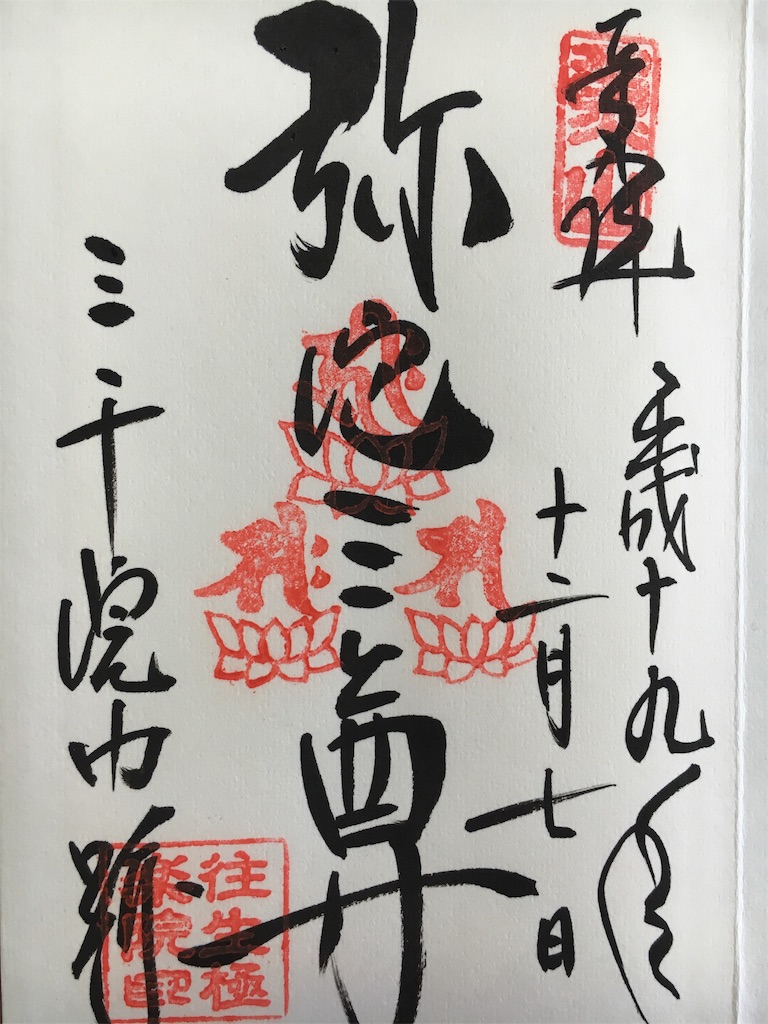 奉拝
平成十九年
十二月七日
弥陀三尊
三千院門跡
往生極
楽院印